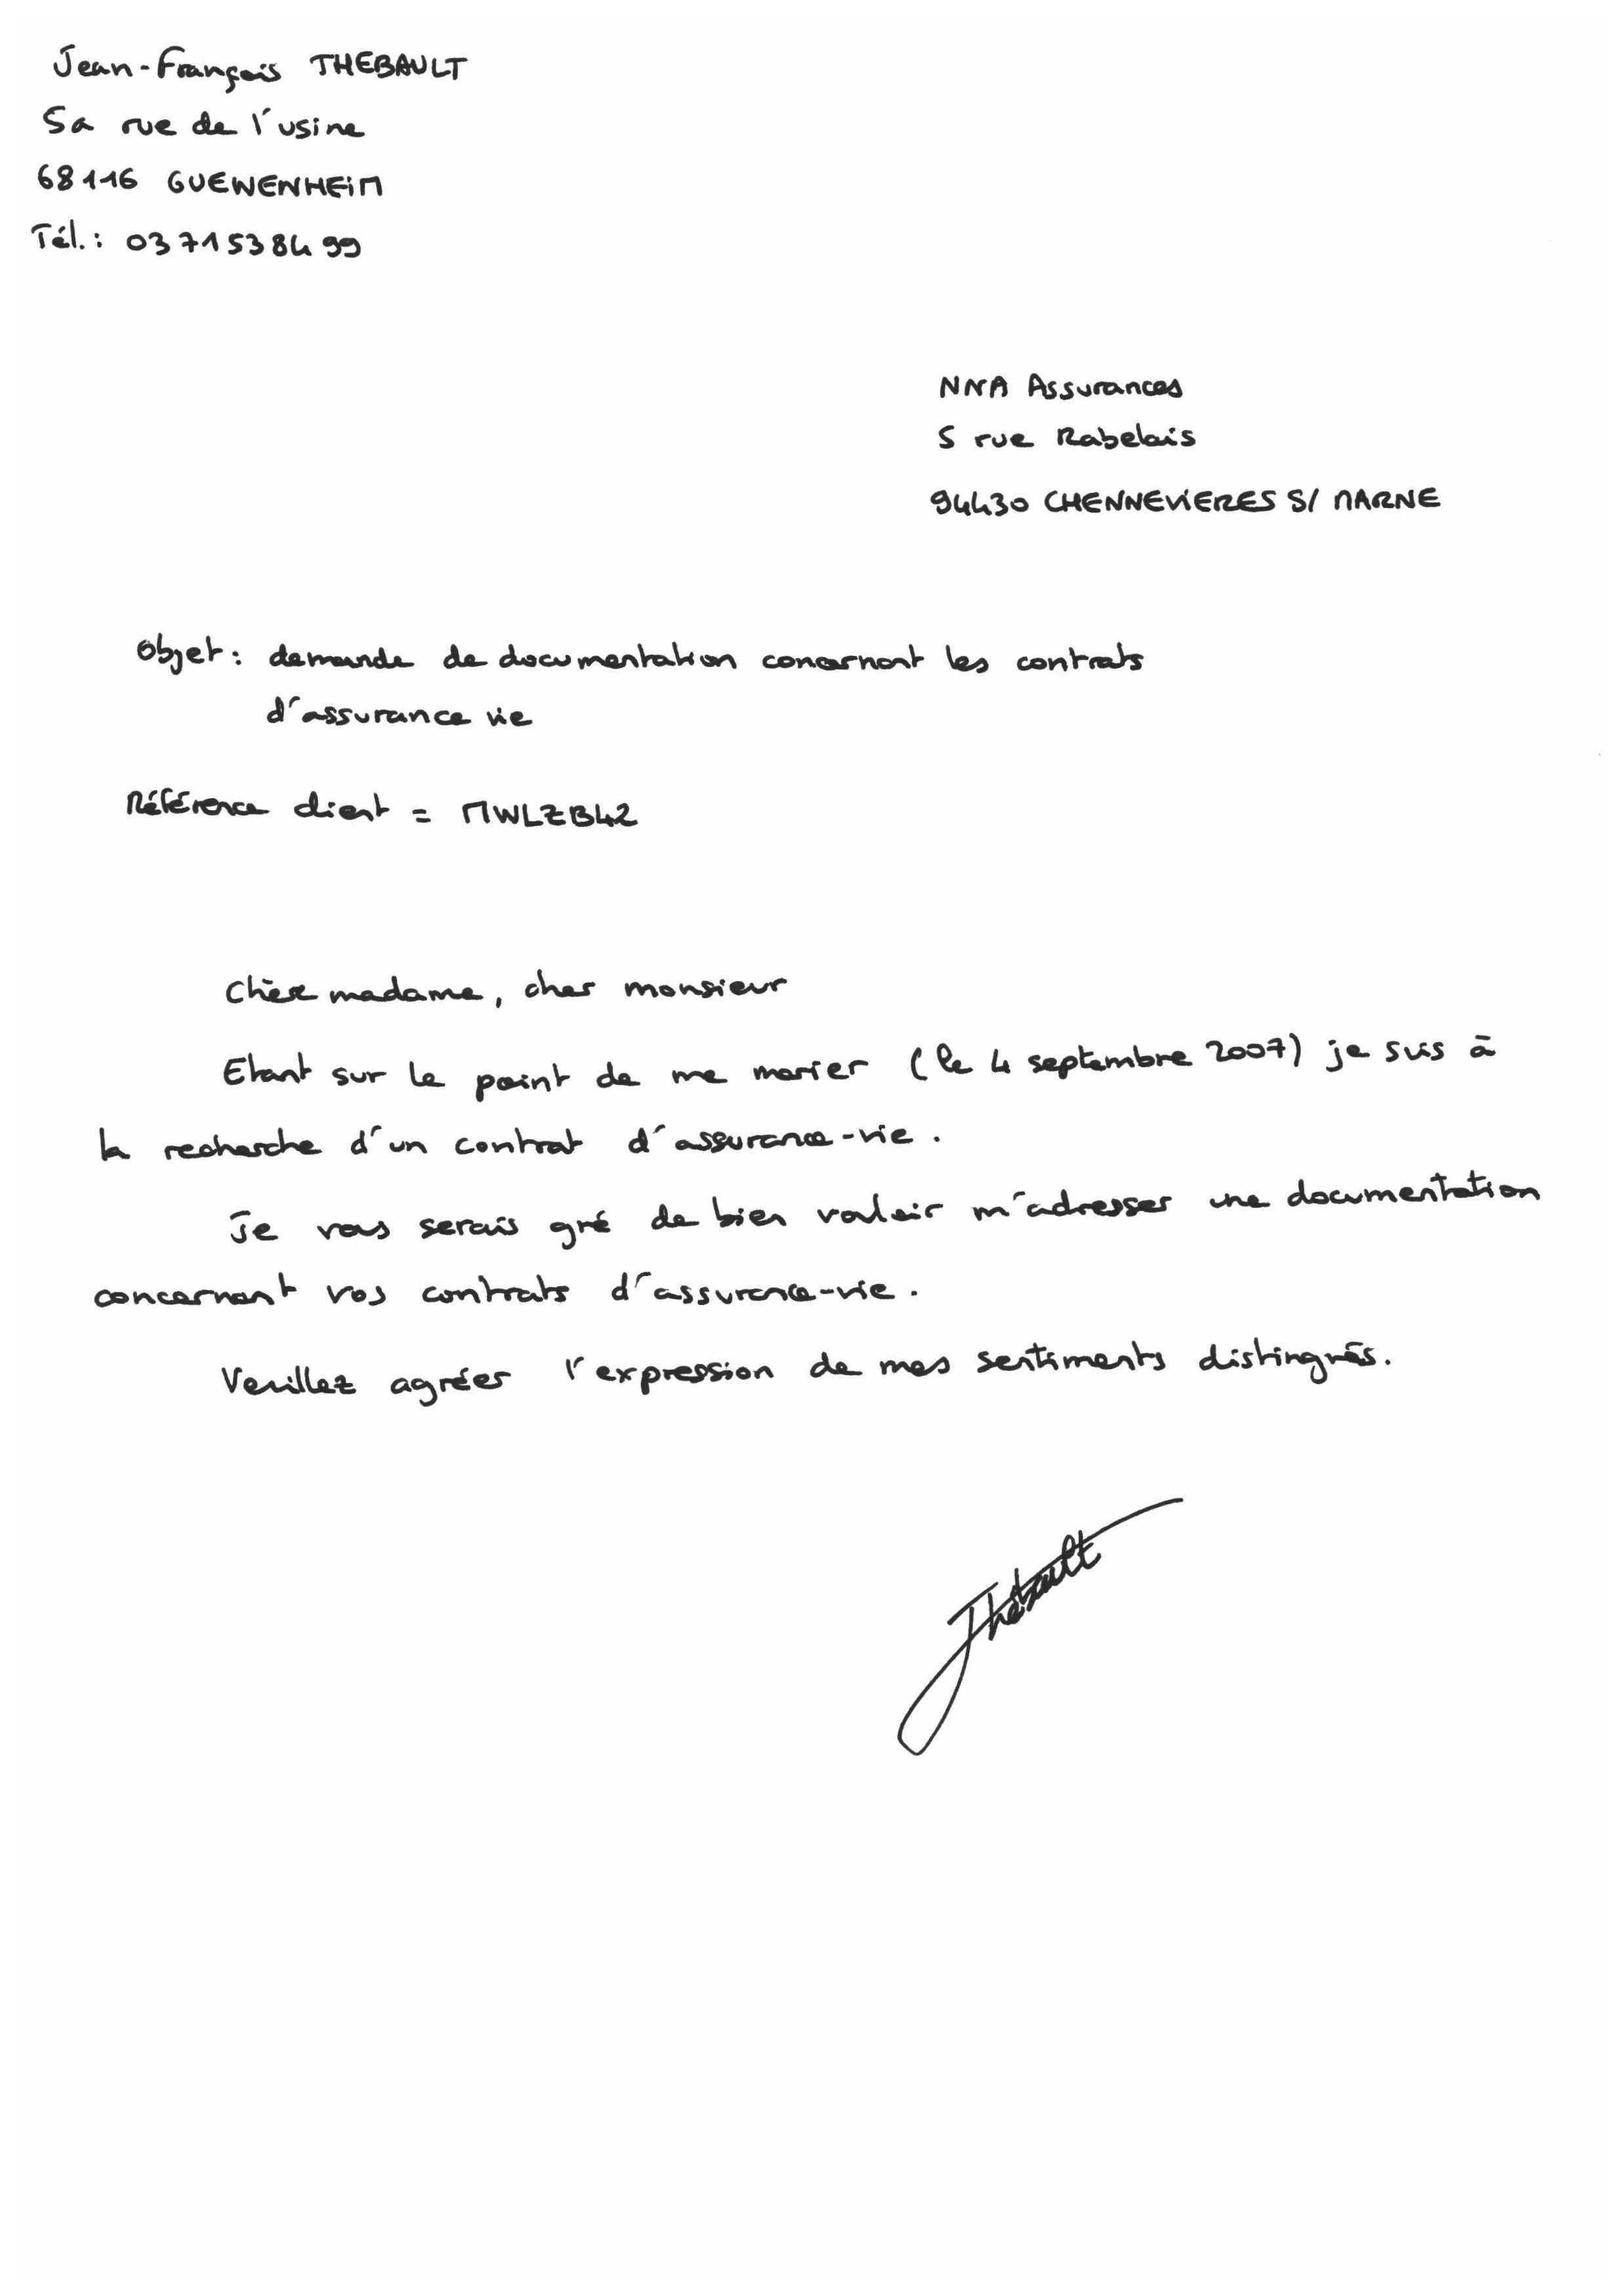 Jean-François THEBAULT
5a rue de l'usine
68116 GUEWENHEIM
Tél.: 0371538499
NNA Assurances
5 rue Rabelais
94430 CHENNEVIERES S/ MARNE
Objet: demande de documentation concernant les contrats
d'assurance vie
Référence client = MWLZB42
Chère madame, cher monsieur
Etant sur le point de me marier (le 4 septembre 2007) je suis à
la recherche d'un contrat d'assurance-vie.
Je vous serais gré de bien vouloir m'adresser une documentation
concernant vos contrats d'assurance-vie.
Veuillez agréer l'expression de mes sentiments distingués.
Thébault